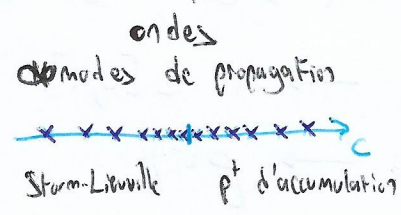 ondes
modes de propagation
c
Sturm-Liouville pt d'accumulation